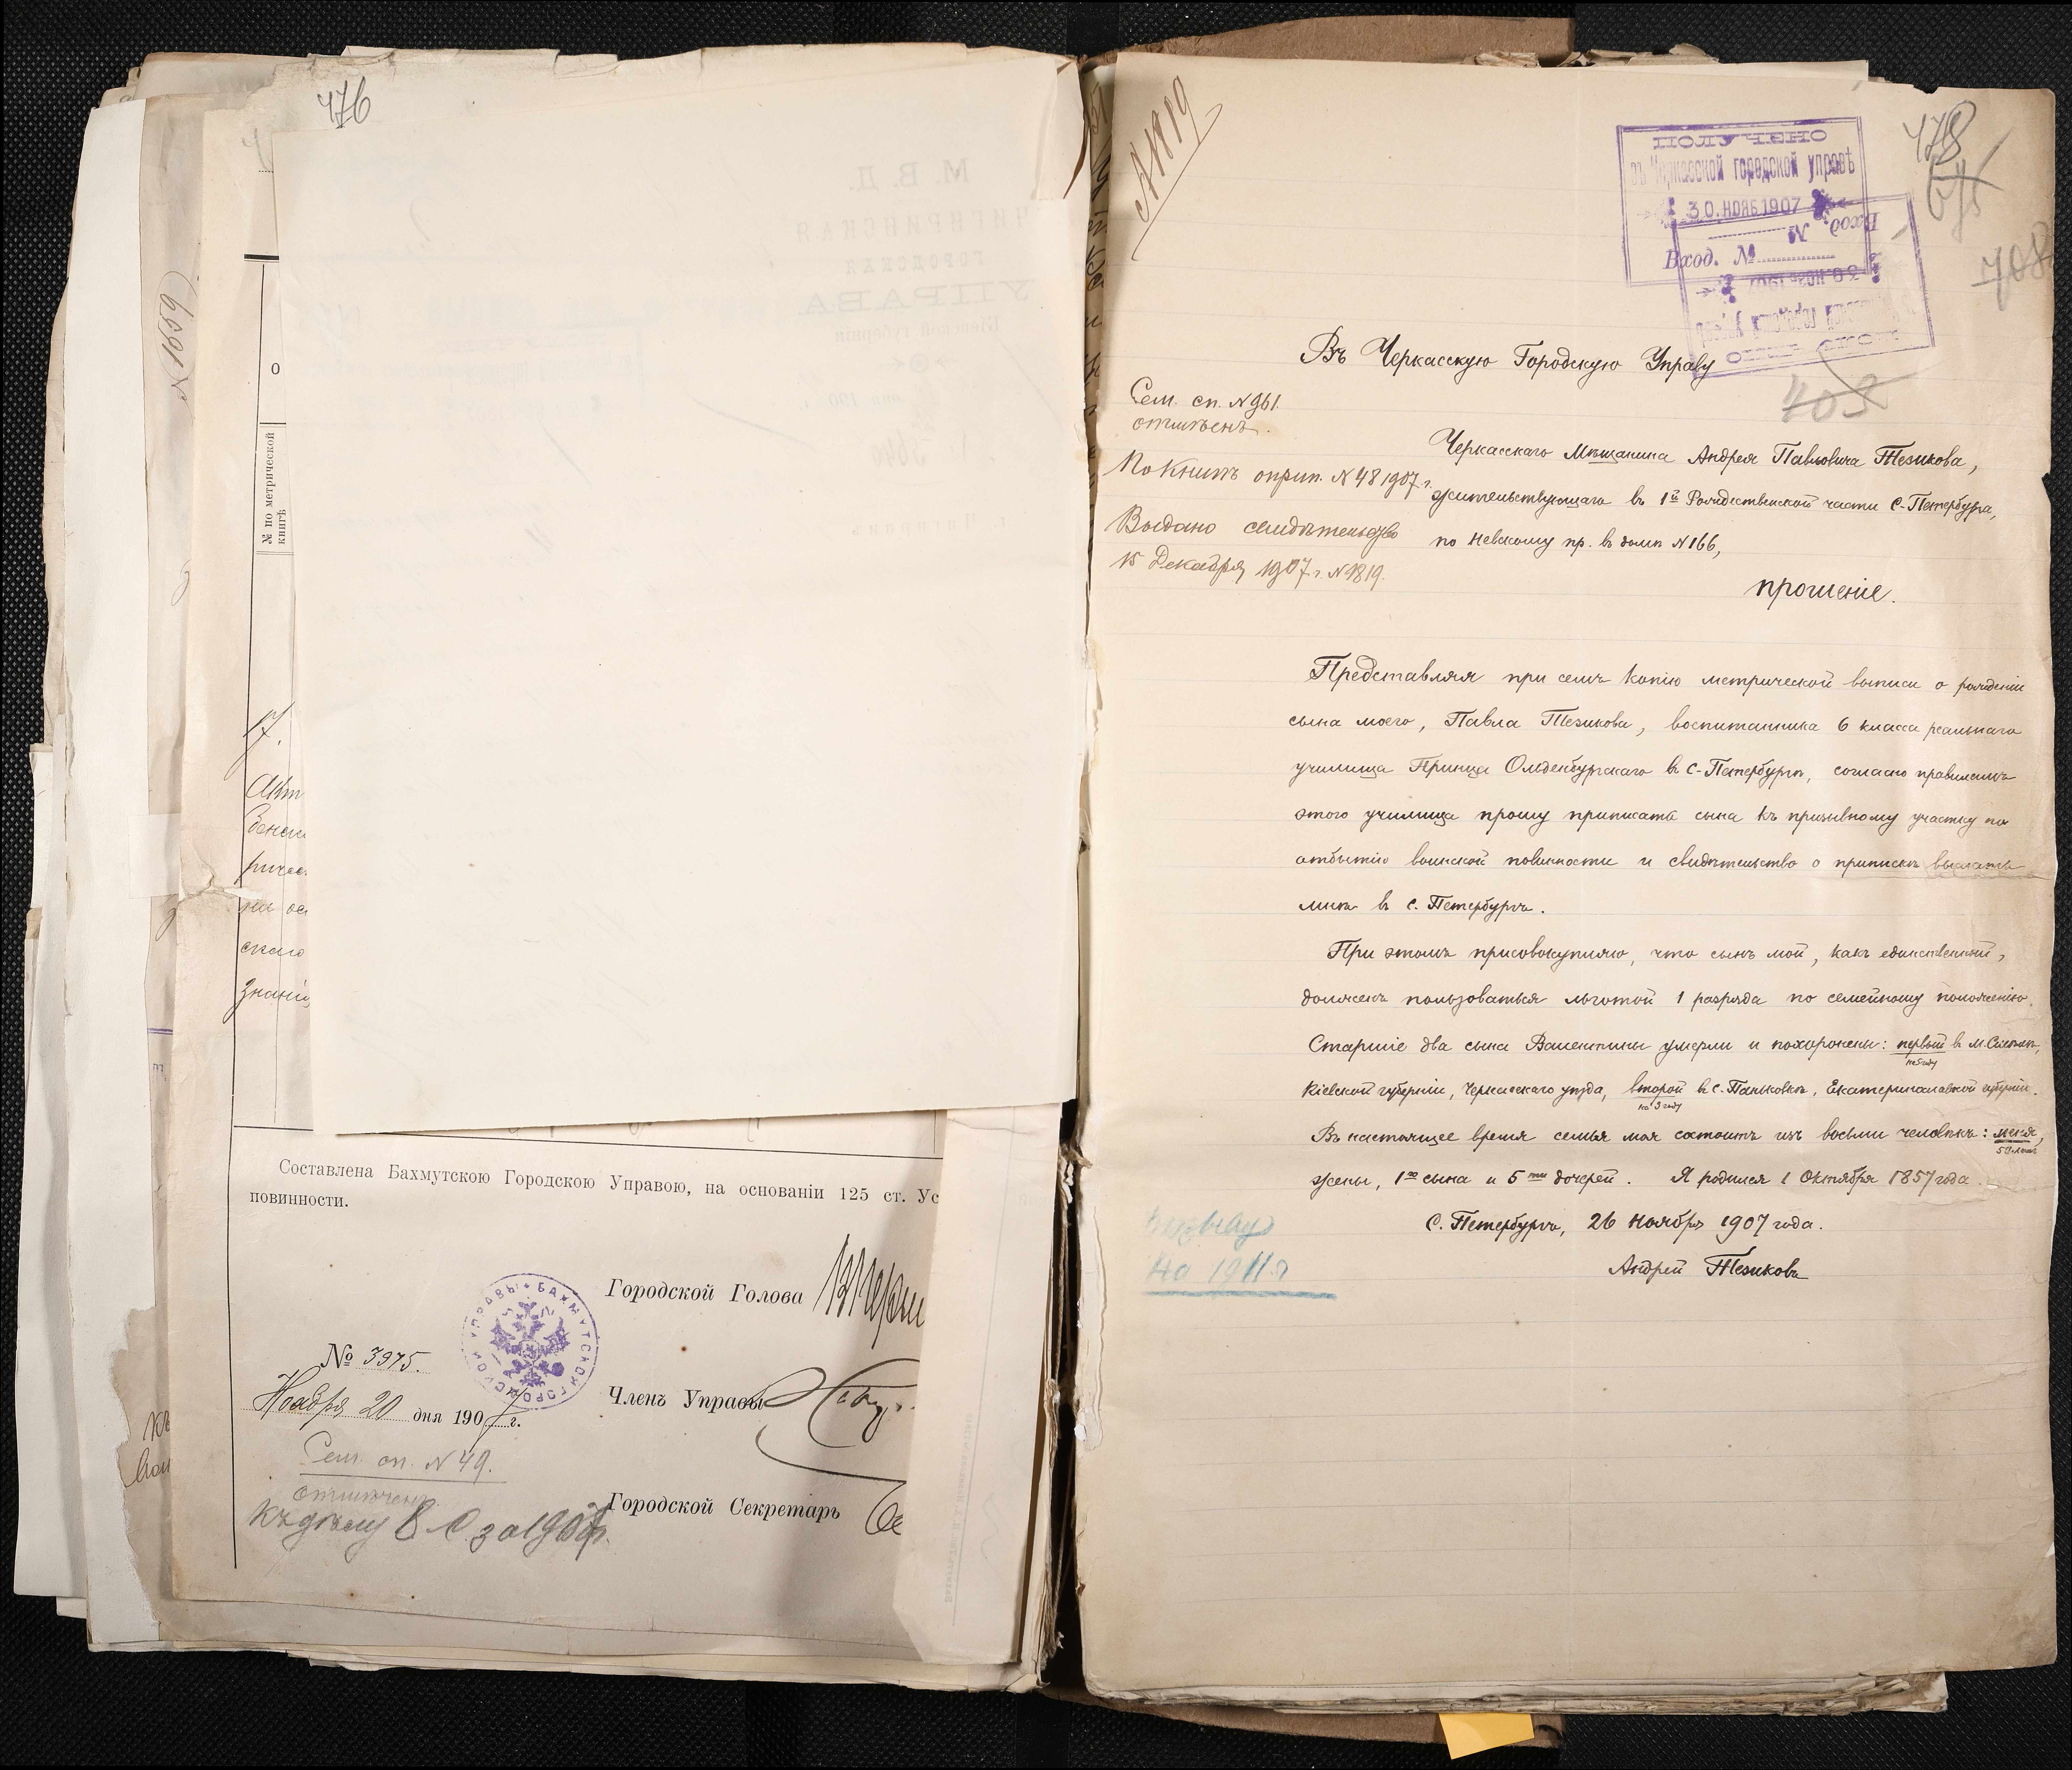 476
№ 1659
0
№ по метрической
книгѣ
17.
Составлена Бахмутскою Городскою Управою, на основаніи 125 ст. Ус
повинности.
Городской Голова
№ 3975.
Ноября 20 дня 1907 г.
Членъ Управы
Сем. сп. N 49.
отмѣченъ.
Къ дѣлу В. О. за 1907 г.
Городской Секретарь
М. В. Д.
ЧИГИРИНСКАЯ
ГОРОДСКАЯ
УПРАВА.
Кіевской губерніи
N 4819
478
675
708
ПОЛУЧЕНО
въ Черкасской городской управѣ
30. НОЯБ 1907
Вход. №
403
Въ Черкасскую Городскую Управу
Сем. сп. N 961.
отмѣченъ.
По книгѣ припис. N 48 1907 г.
Выдано свидѣтельство
15 Декабря 1907 г. N 4819.
Черкасскаго Мѣщанина Андрея Павловича Тезикова,
жительствующаго въ 1й Рождественской части С-Петербурга,
по Невскому пр. въ домѣ N 166,
прошеніе.
Представляя при семъ копію метрической выписи о рожденіи
сына моего, Павла Тезикова, воспитанника 6 класса реальнаго
училища Принца Ольденбургскаго въ С-Петербургѣ, согласно правиламъ
этого училища прошу приписать сына къ призывному участку по
отбытію воинской повинности и свидѣтельство о припискѣ выслать
мнѣ въ С. Петербургъ.
При этомъ присовокупляю, что сынъ мой, какъ единственный,
долженъ пользоваться льготой 1 разряда по семейному положенію.
Старшіе два сына Валентины умерли и похоронены: первый въ м. Смѣлѣ,
Кіевской губерніи, Черкасскаго уѣзда, второй въ с. Паньковкѣ, Екатеринославской губерніи.
на 3 году
Въ настоящее время семья моя состоитъ изъ восьми человѣкъ: меня,
жены, 1го сына и 5ти дочерей. Я родился 1 Октября 1857 года.
С. Петербургъ, 26 Ноября 1907 года.
Андрей Тезиковъ
на 1911 г